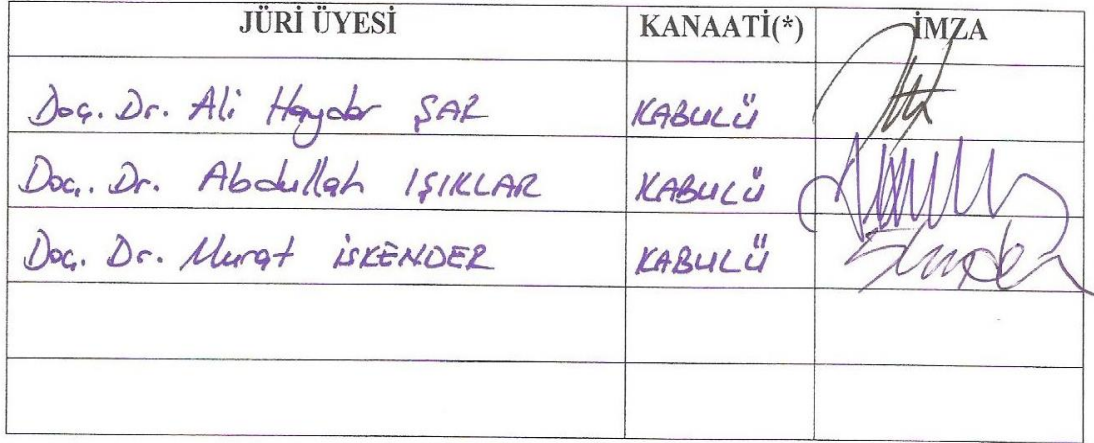 JÜRİ ÜYESİ KANAATİ(*) İMZA
Doç. Dr. Ali Haydar ŞAR KABULÜ
Doç. Dr. Abdullah IŞIKLAR KABULÜ
Doç. Dr. Murat İSKENDER KABULÜ